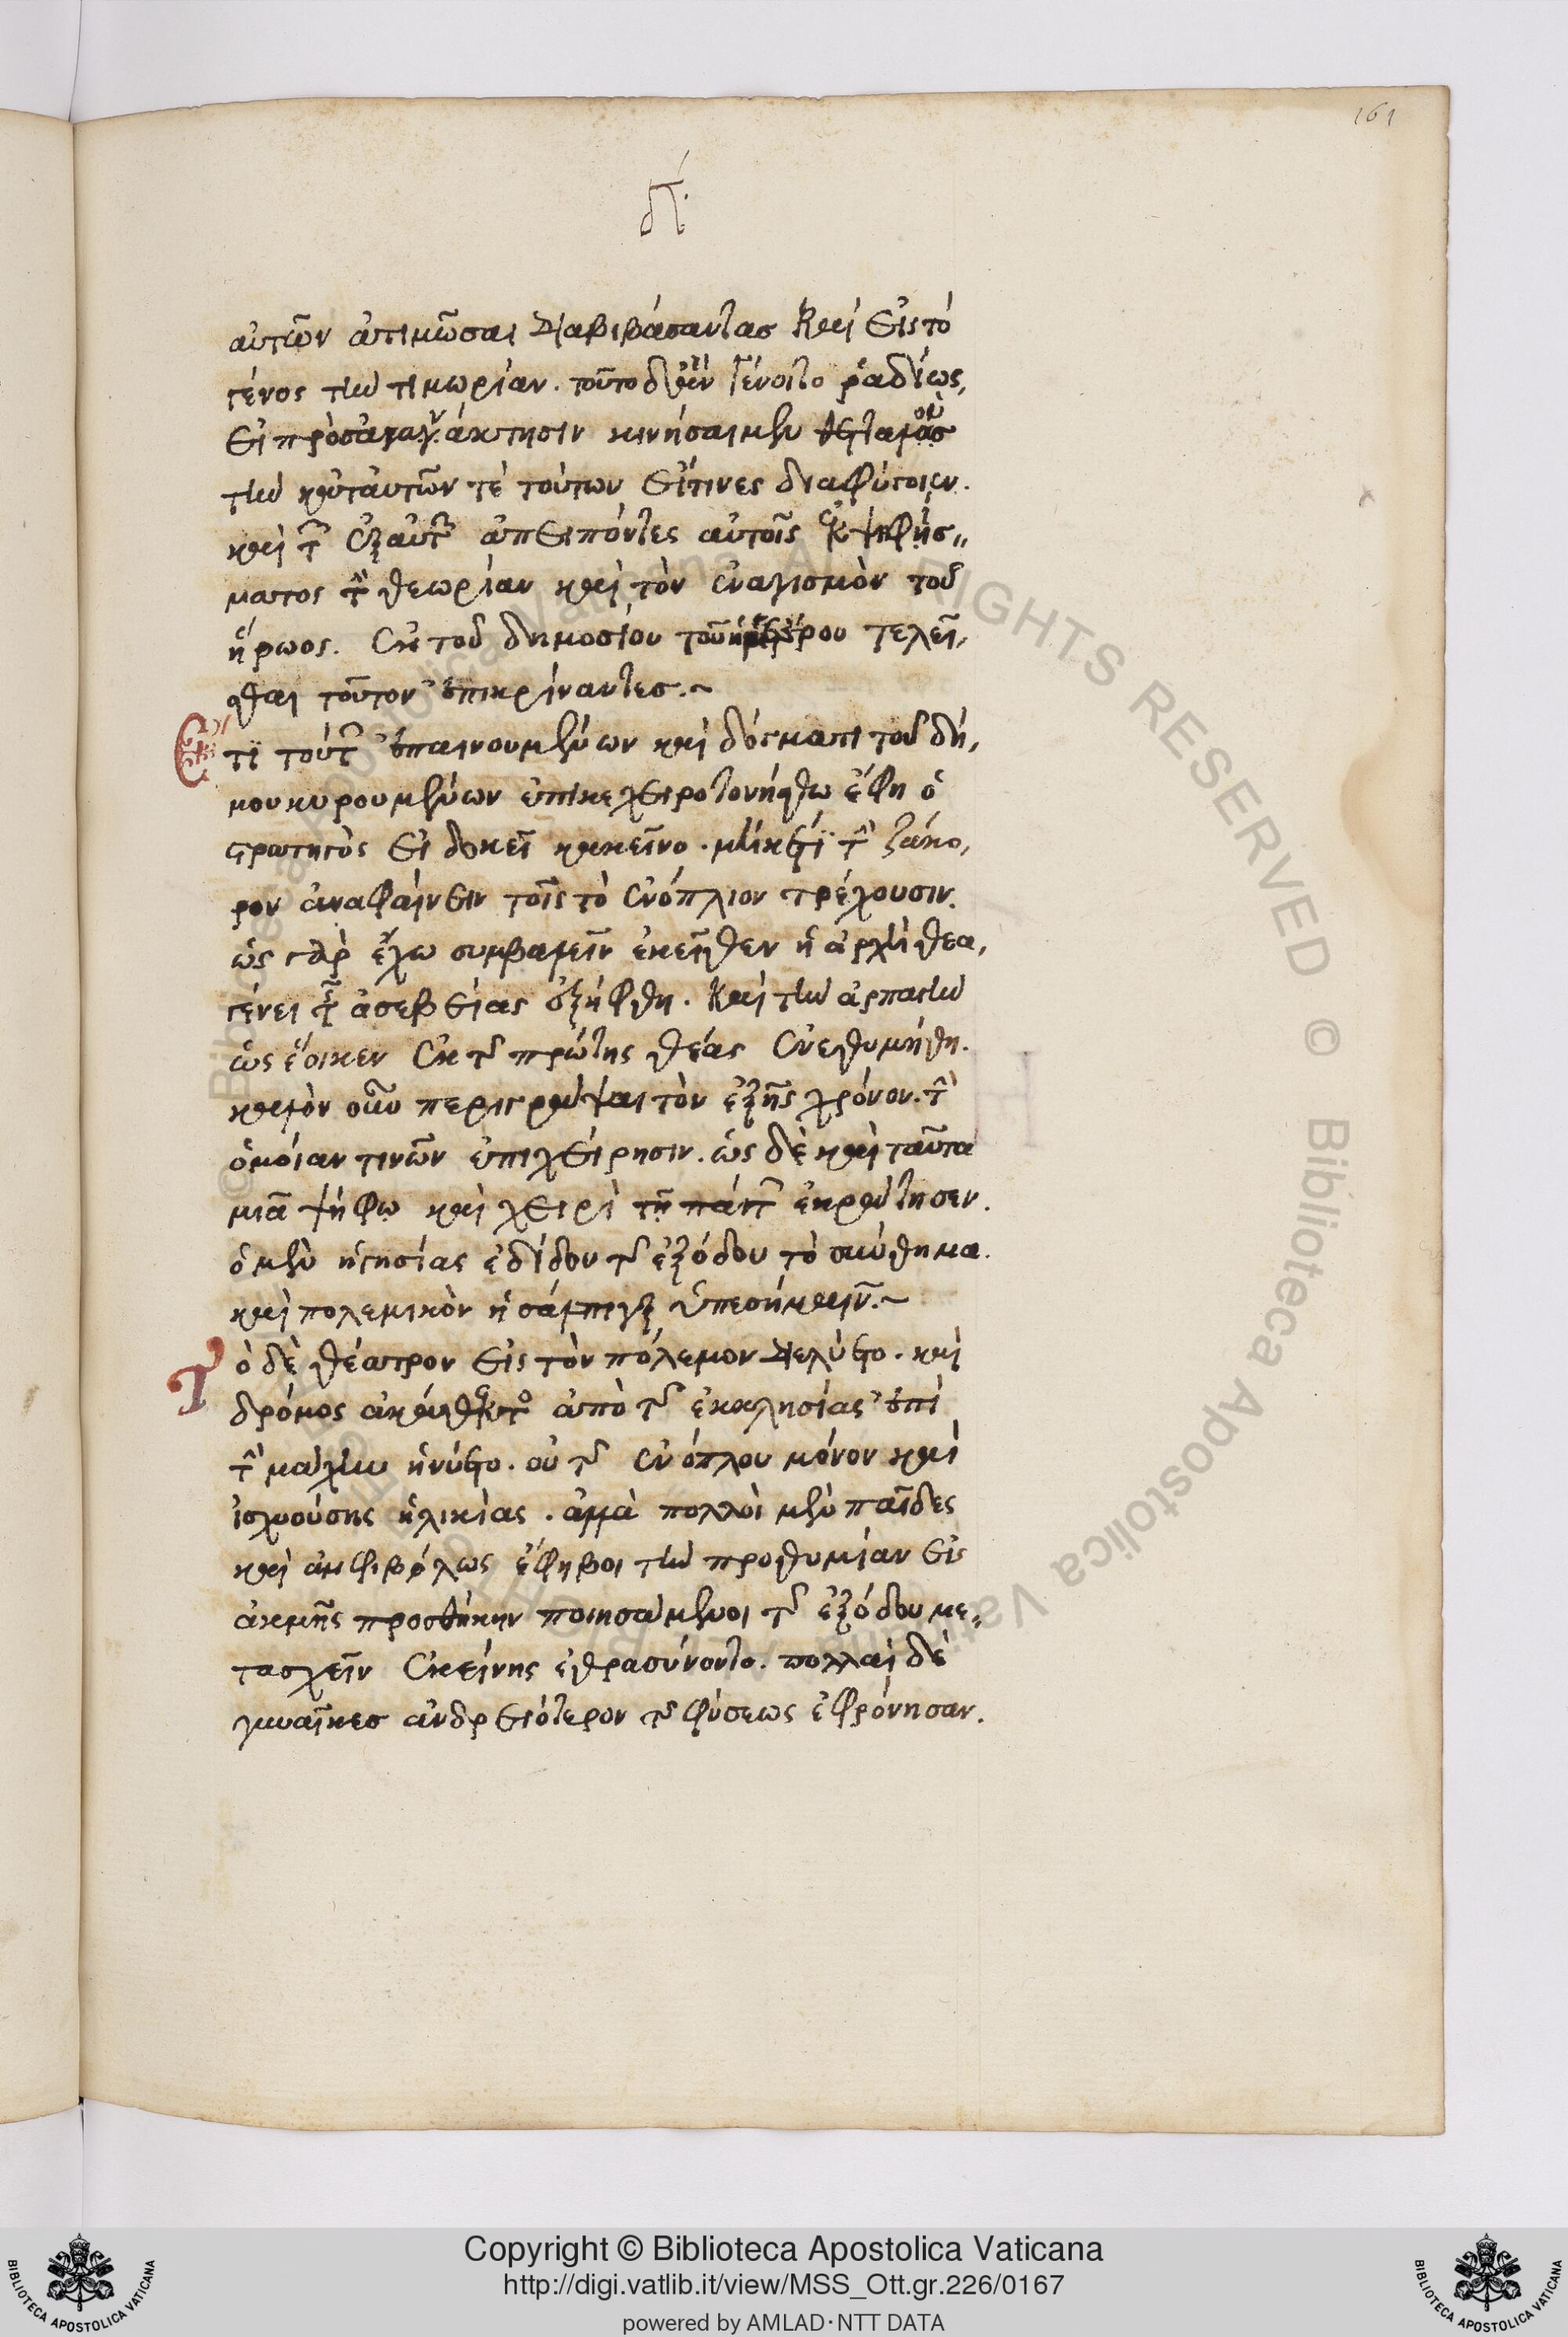 161
δ΄
αὐτῶν ἀτιμῶσαι διαβιβάσαντας καὶ εἰς τὸ
γένος τὴν τιμωρίαν. τοῦτο δ' ἂν γένοιτο ῥαδίως,
εἰ πρὸς ἀγανάκτησιν κινήσαιμεν
τὴν κατ' αὐτῶν τὲ τούτων εἴτινες διαφύγοιεν.
καὶ τῶν ἐξ αὐτῶν ἀπειπόντες αὐτοῖς ἐκ ψηφίσ
ματος τὴν θεωρίαν καὶ τὸν ἐναγισμὸν τοῦ
ἥρωος. ἐκ τοῦ δημοσίου τοῦ ἡμετέρου τελεῖ
σθαι τοῦτον ἐπικρίναντες.~
Ἔτι τούτων ἐπαινουμένων καὶ δόγματι τοῦ δή
μου κυρουμένων ἐπικεχειροτονήσθω ἔφη ὁ
στρατηγὸς εἰ δοκεῖ κἀκεῖνο. μηκέτι τὴν ζάκο
ρον ἀναφαίνειν τοῖς τὸ ἐνόπλιον τρέχουσιν.
ὡς γὰρ ἔχω συμβαλεῖν ἐκεῖθεν ἡ ἀρχὴ θεα
γένει τῆς ἀσεβείας ἐξήφθη. καὶ τὴν ἁρπαγὴν
ὡς ἔοικεν ἐκ τῆς πρώτης θέας ἐνεθυμήθη.
καλὸν οὖν περιγράψαι τὸν ἑξῆς χρόνον. τὴν
ὁμοίαν τινῶν ἐπιχείρησιν. ὡς δὲ καὶ ταῦτα
μιᾶ ψήφω καὶ χειρὶ τῆ πάντων ἐκράτησεν.
ὁ μὲν ἡγησίας ἐδίδου τῆς ἐξόδου τὸ σύνθημα.
καὶ πολεμικὸν ἡ σάλπιγξ ὑπεσήμαινεν.~
Τὸ δὲ θέατρον εἰς τὸν πόλεμον διελύετο. καὶ
δρόμος ἀκάθεκτος ἀπὸ τῆς ἐκκλησίας ἐπὶ
τὴν μάχην ἠνύετο. οὐ τῆς ἐνόπλου μόνον καὶ
ἰσχυούσης ἡλικίας. ἀλλὰ πολλοὶ μὲν παῖδες
καὶ ἀμφιβόλως ἔφηβοι τὴν προθυμίαν εἰς
ἀκμῆς προσθήκην ποιησάμενοι τῆς ἐξόδου με
τασχεῖν ἐκείνης ἐθρασύνοντο. πολλαὶ δὲ
γυναῖκες ἀνδρειότερον τῆς φύσεως ἐφρόνησαν.
Copyright © Biblioteca Apostolica Vaticana
http://digi.vatlib.it/view/MSS_Ott.gr.226/0167
powered by AMLAD·NTT DATA